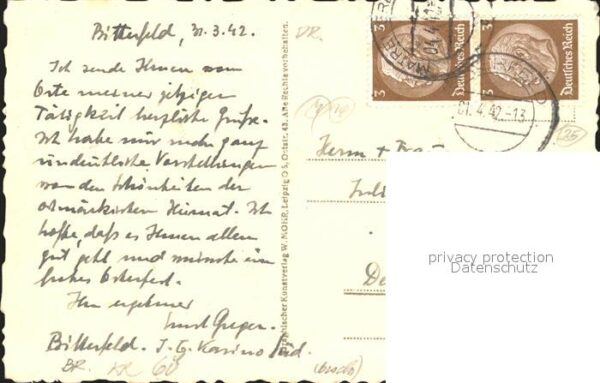 Bitterfeld, 31.3.42.
Ich sende Ihnen vom
Orte meiner jetzigen
Tätigkeit herzliche Grüße.
Ich habe nur mehr ganz
undeutliche Vorstellungen
von den Schönheiten der
ostmärkischen Heimat. Ich
hoffe, daß es Ihnen allen
gut geht und wünsche ein
frohes Osterfest.
Ihr ergebener
Bitterfeld. I. G. Kasino Süd.
Kunstverlag W. MOHR, Leipzig O 5, Oststr. 43. Alle Rechte vorbehalten.
3
Deutsches Reich
3
Deutsches Reich
01.4.42-13
Herrn + Frau
privacy protection
Datenschutz